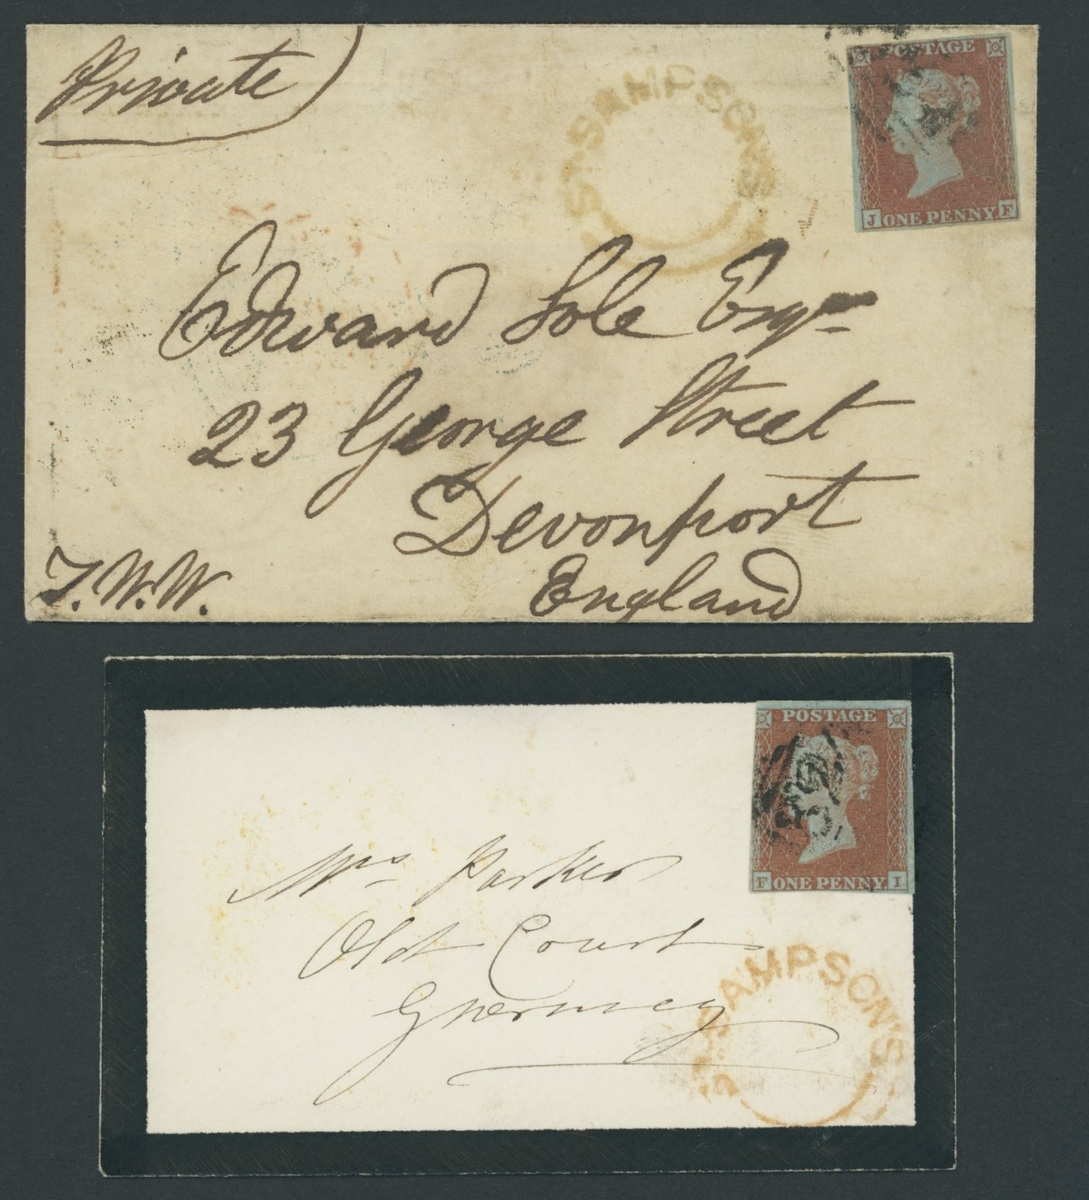 Private
ST. SAMPSON'S
POSTAGE
J ONE PENNY F
Edward Sole Esqre
23 George Street
Devonport
England
T.W.W.
POSTAGE
F ONE PENNY I
Mrs Parker
Old Court
Guernsey
ST. SAMPSON'S